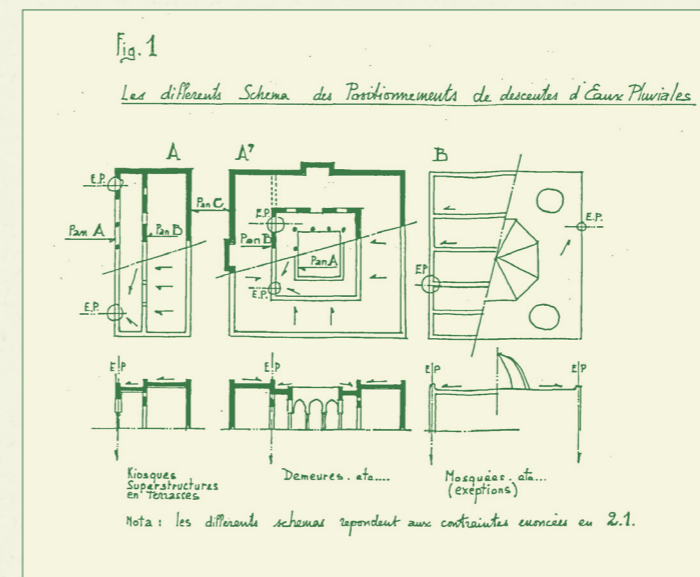 Fig. 1
Les differents Schema des Positionnements de descentes d'Eaux Pluviales
A A' B
E.P.
Pan C
Pan A
Pan B
E.P.
E.P.
Pan B
Pan A
E.P.
E.P.
EP
E P
E P
E P
E P
Kiosques
Superstructures
en Terrasses
Demeures. etc....
Mosquées. etc...
(exéptions)
Nota : les differents schemas repondent aux contraintes enoncées en 2.1.